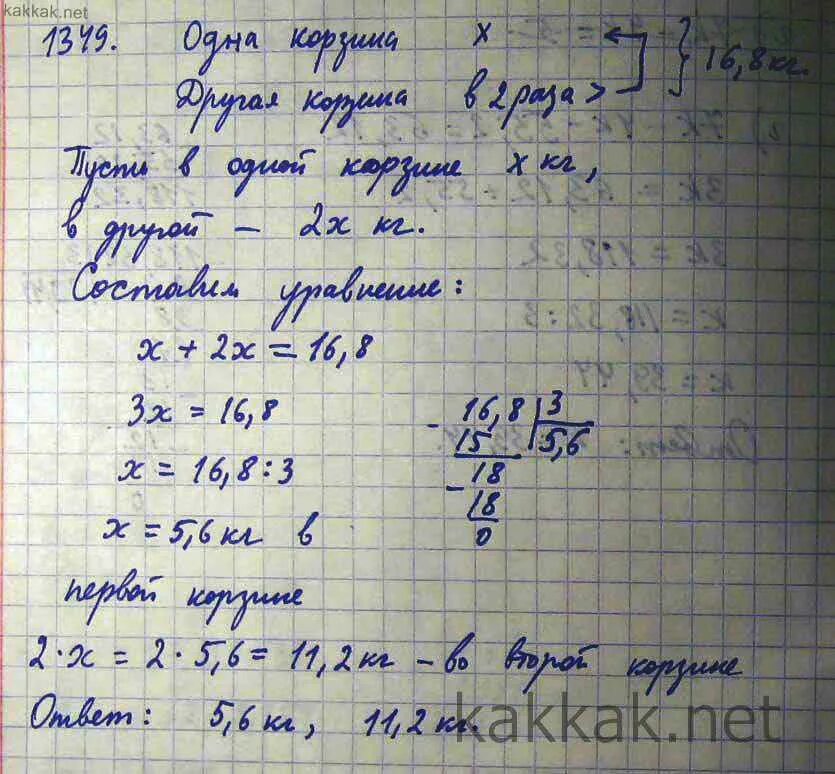 kakkak.net
1349. Одна корзина x
Другая корзина в 2 раза > } 16,8 кг.
Пусть в одной корзине x кг,
в другой – 2x кг.
Составим уравнение:
x + 2x = 16,8
3x = 16,8
x = 16,8 : 3
x = 5,6 кг в
первой корзине
- 16,8 | 3
15 5,6
- 18
18
0
2 · x = 2 · 5,6 = 11,2 кг – во второй корзине
Ответ: 5,6 кг, 11,2 кг.
kakkak.net